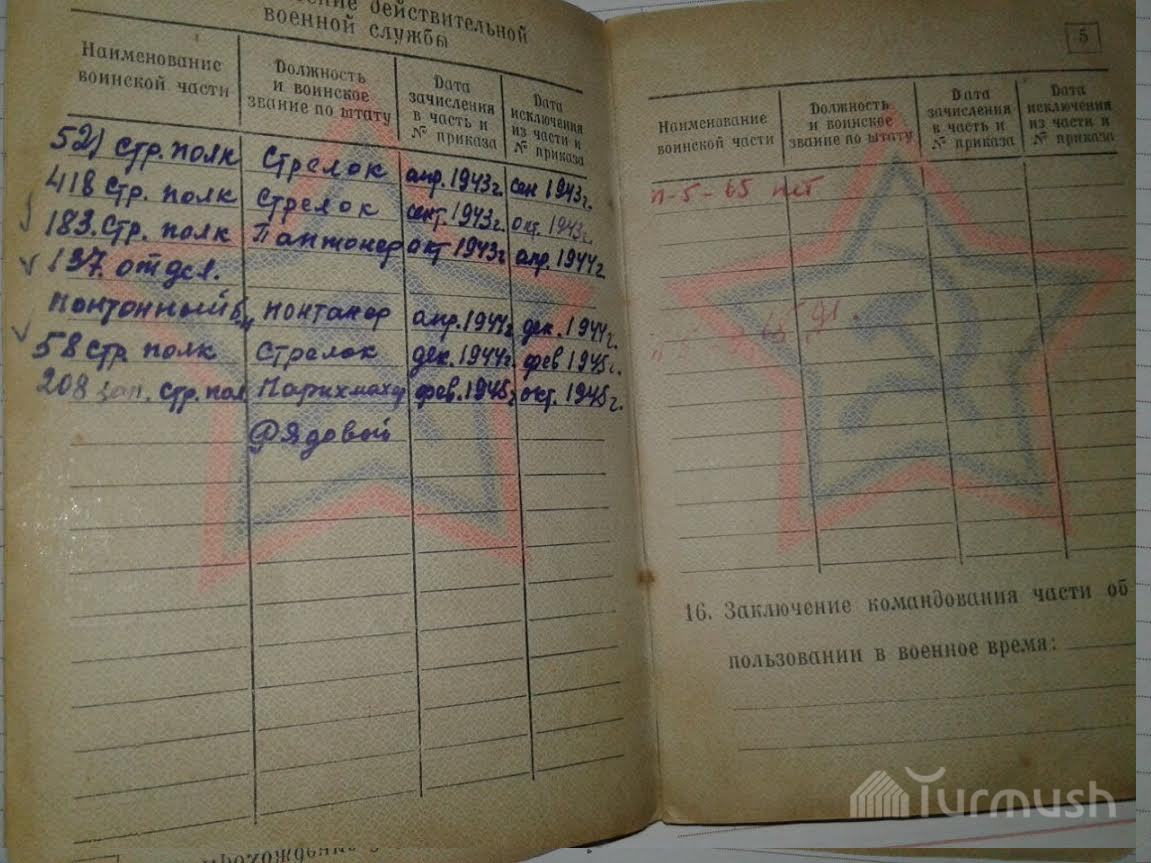 действительной
военной службы
Наименование воинской части Должность и воинское звание по штату Дата зачисления в часть и № приказа Дата исключения из части и № приказа
521 стр. полк Стрелок апр. 1943г. сен 1943г.
418 стр. полк Стрелок сент. 1943г. окт. 1943г.
183. Стр. полк Пантонер окт 1943г апр. 1944г
137. отдел.
понтонный понтанер апр. 1944г. дек. 1944г.
58 стр полк Стрелок дек. 1944г. фев 1945г.
208 зап. стр. пол Парихмахер фев. 1945г окт. 1945г.
Рядовой
5
Наименование воинской части Должность и воинское звание по штату Дата зачисления в часть и № приказа Дата исключения из части и № приказа
п-5-65 лет
16. Заключение командования части об
пользовании в военное время:
Turmush